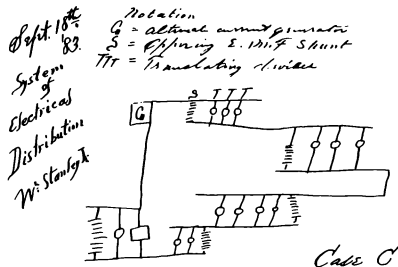 Sept. 18th
'83.
System
of
Electrical
Distribution
Wm Stanley Jr
Notation
G = alternat current generator
S = Opposing E.M.F Shunt
TTT = Translating devices
G
S T T T
Case C